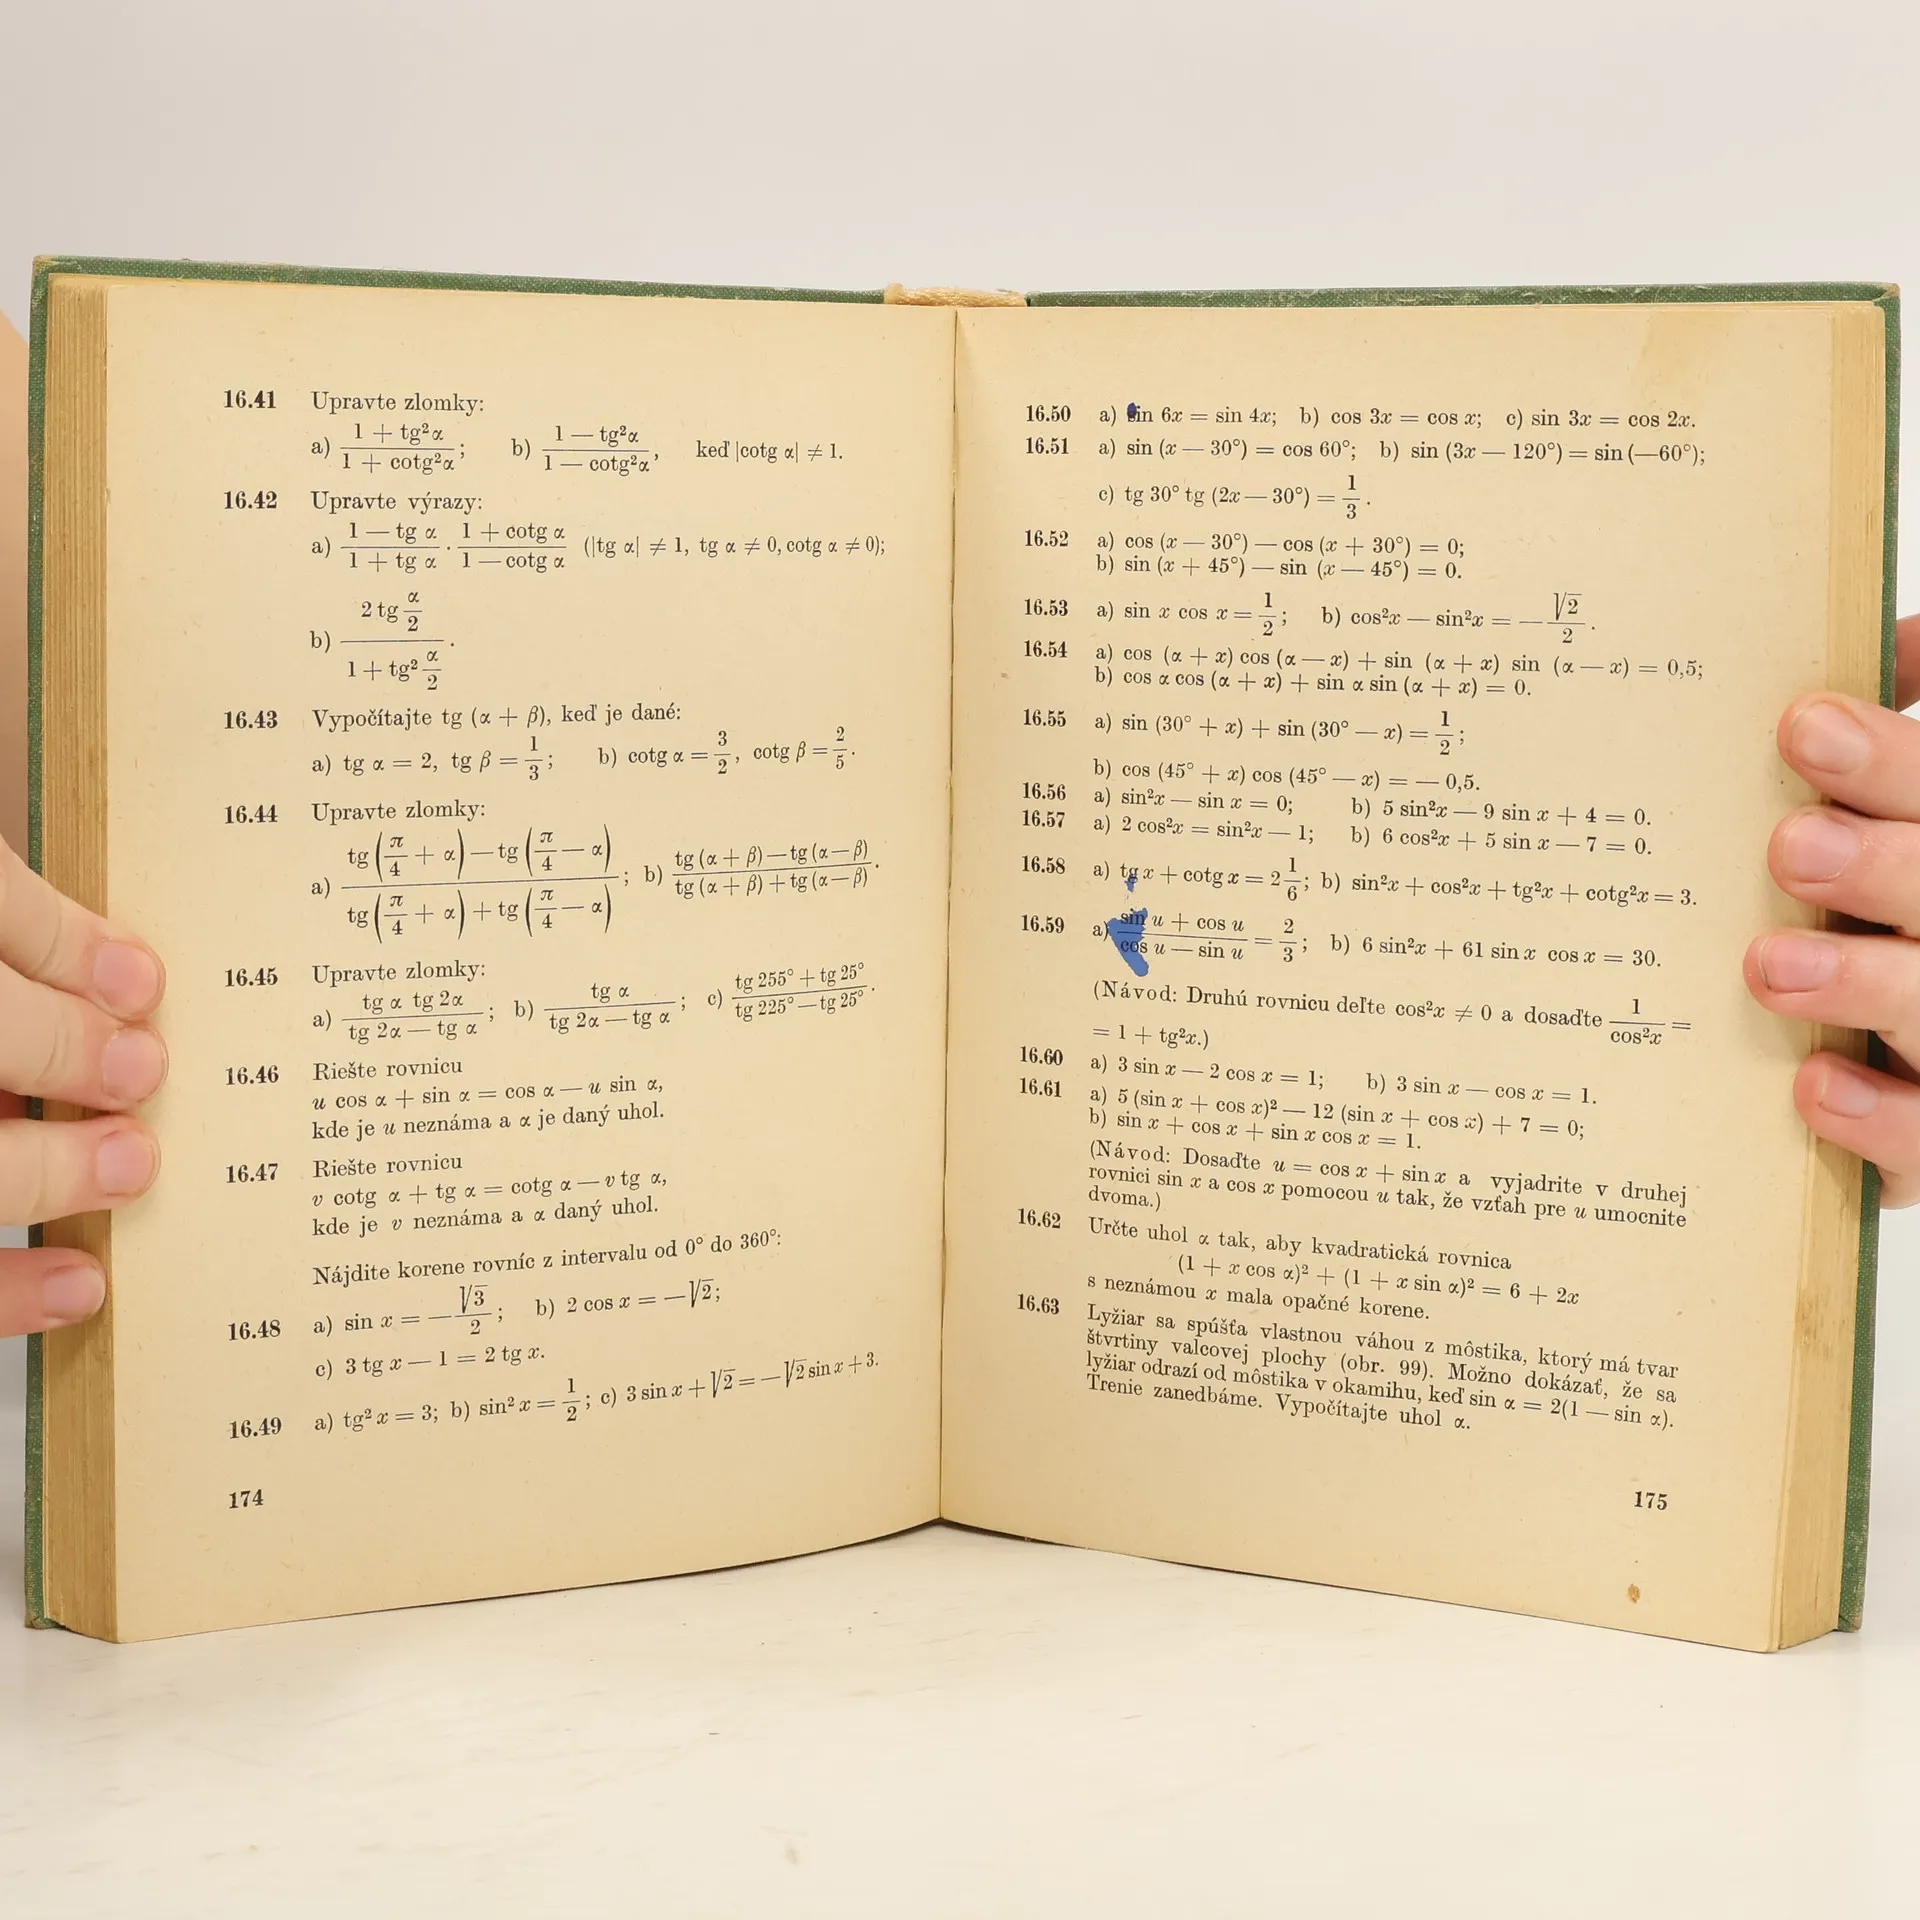 16.41 Upravte zlomky:
a) (1 + tg²α)/(1 + cotg²α); b) (1 — tg²α)/(1 — cotg²α), keď |cotg α| ≠ 1.
16.42 Upravte výrazy:
a) (1 — tg α)/(1 + tg α) · (1 + cotg α)/(1 — cotg α) (|tg α| ≠ 1, tg α ≠ 0, cotg α ≠ 0);
b) (2 tg α/2)/(1 + tg² α/2).
16.43 Vypočítajte tg (α + β), keď je dané:
a) tg α = 2, tg β = 1/3; b) cotg α = 3/2, cotg β = 2/5.
16.44 Upravte zlomky:
a) (tg (π/4 + α) — tg (π/4 — α))/(tg (π/4 + α) + tg (π/4 — α)); b) (tg (α + β) — tg (α — β))/(tg (α + β) + tg (α — β)).
16.45 Upravte zlomky:
a) (tg α tg 2α)/(tg 2α — tg α); b) (tg α)/(tg 2α — tg α); c) (tg 255° + tg 25°)/(tg 225° — tg 25°).
16.46 Riešte rovnicu
u cos α + sin α = cos α — u sin α,
kde je u neznáma a α je daný uhol.
16.47 Riešte rovnicu
v cotg α + tg α = cotg α — v tg α,
kde je v neznáma a α daný uhol.
Nájdite korene rovníc z intervalu od 0° do 360°:
16.48 a) sin x = —√3/2; b) 2 cos x = —√2;
c) 3 tg x — 1 = 2 tg x.
16.49 a) tg² x = 3; b) sin² x = 1/2; c) 3 sin x + √2 = —√2 sin x + 3.
174
16.50 a) sin 6x = sin 4x; b) cos 3x = cos x; c) sin 3x = cos 2x.
16.51 a) sin (x — 30°) = cos 60°; b) sin (3x — 120°) = sin (—60°);
c) tg 30° tg (2x — 30°) = 1/3.
16.52 a) cos (x — 30°) — cos (x + 30°) = 0;
b) sin (x + 45°) — sin (x — 45°) = 0.
16.53 a) sin x cos x = 1/2; b) cos²x — sin²x = —√2/2.
16.54 a) cos (α + x) cos (α — x) + sin (α + x) sin (α — x) = 0,5;
b) cos α cos (α + x) + sin α sin (α + x) = 0.
16.55 a) sin (30° + x) + sin (30° — x) = 1/2;
b) cos (45° + x) cos (45° — x) = — 0,5.
16.56 a) sin²x — sin x = 0; b) 5 sin²x — 9 sin x + 4 = 0.
16.57 a) 2 cos²x = sin²x — 1; b) 6 cos²x + 5 sin x — 7 = 0.
16.58 a) tg x + cotg x = 2 1/6; b) sin²x + cos²x + tg²x + cotg²x = 3.
16.59 a) (sin u + cos u)/(cos u — sin u) = 2/3; b) 6 sin²x + 61 sin x cos x = 30.
(Návod: Druhú rovnicu deľte cos²x ≠ 0 a dosaďte 1/cos²x =
= 1 + tg²x.)
16.60 a) 3 sin x — 2 cos x = 1; b) 3 sin x — cos x = 1.
16.61 a) 5 (sin x + cos x)² — 12 (sin x + cos x) + 7 = 0;
b) sin x + cos x + sin x cos x = 1.
(Návod: Dosaďte u = cos x + sin x a vyjadrite v druhej
rovnici sin x a cos x pomocou u tak, že vzťah pre u umocnite
dvoma.)
16.62 Určte uhol α tak, aby kvadratická rovnica
(1 + x cos α)² + (1 + x sin α)² = 6 + 2x
s neznámou x mala opačné korene.
16.63 Lyžiar sa spúšťa vlastnou váhou z môstika, ktorý má tvar
štvrtiny valcovej plochy (obr. 99). Možno dokázať, že sa
lyžiar odrazí od môstika v okamihu, keď sin α = 2(1 — sin α).
Trenie zanedbáme. Vypočítajte uhol α.
175